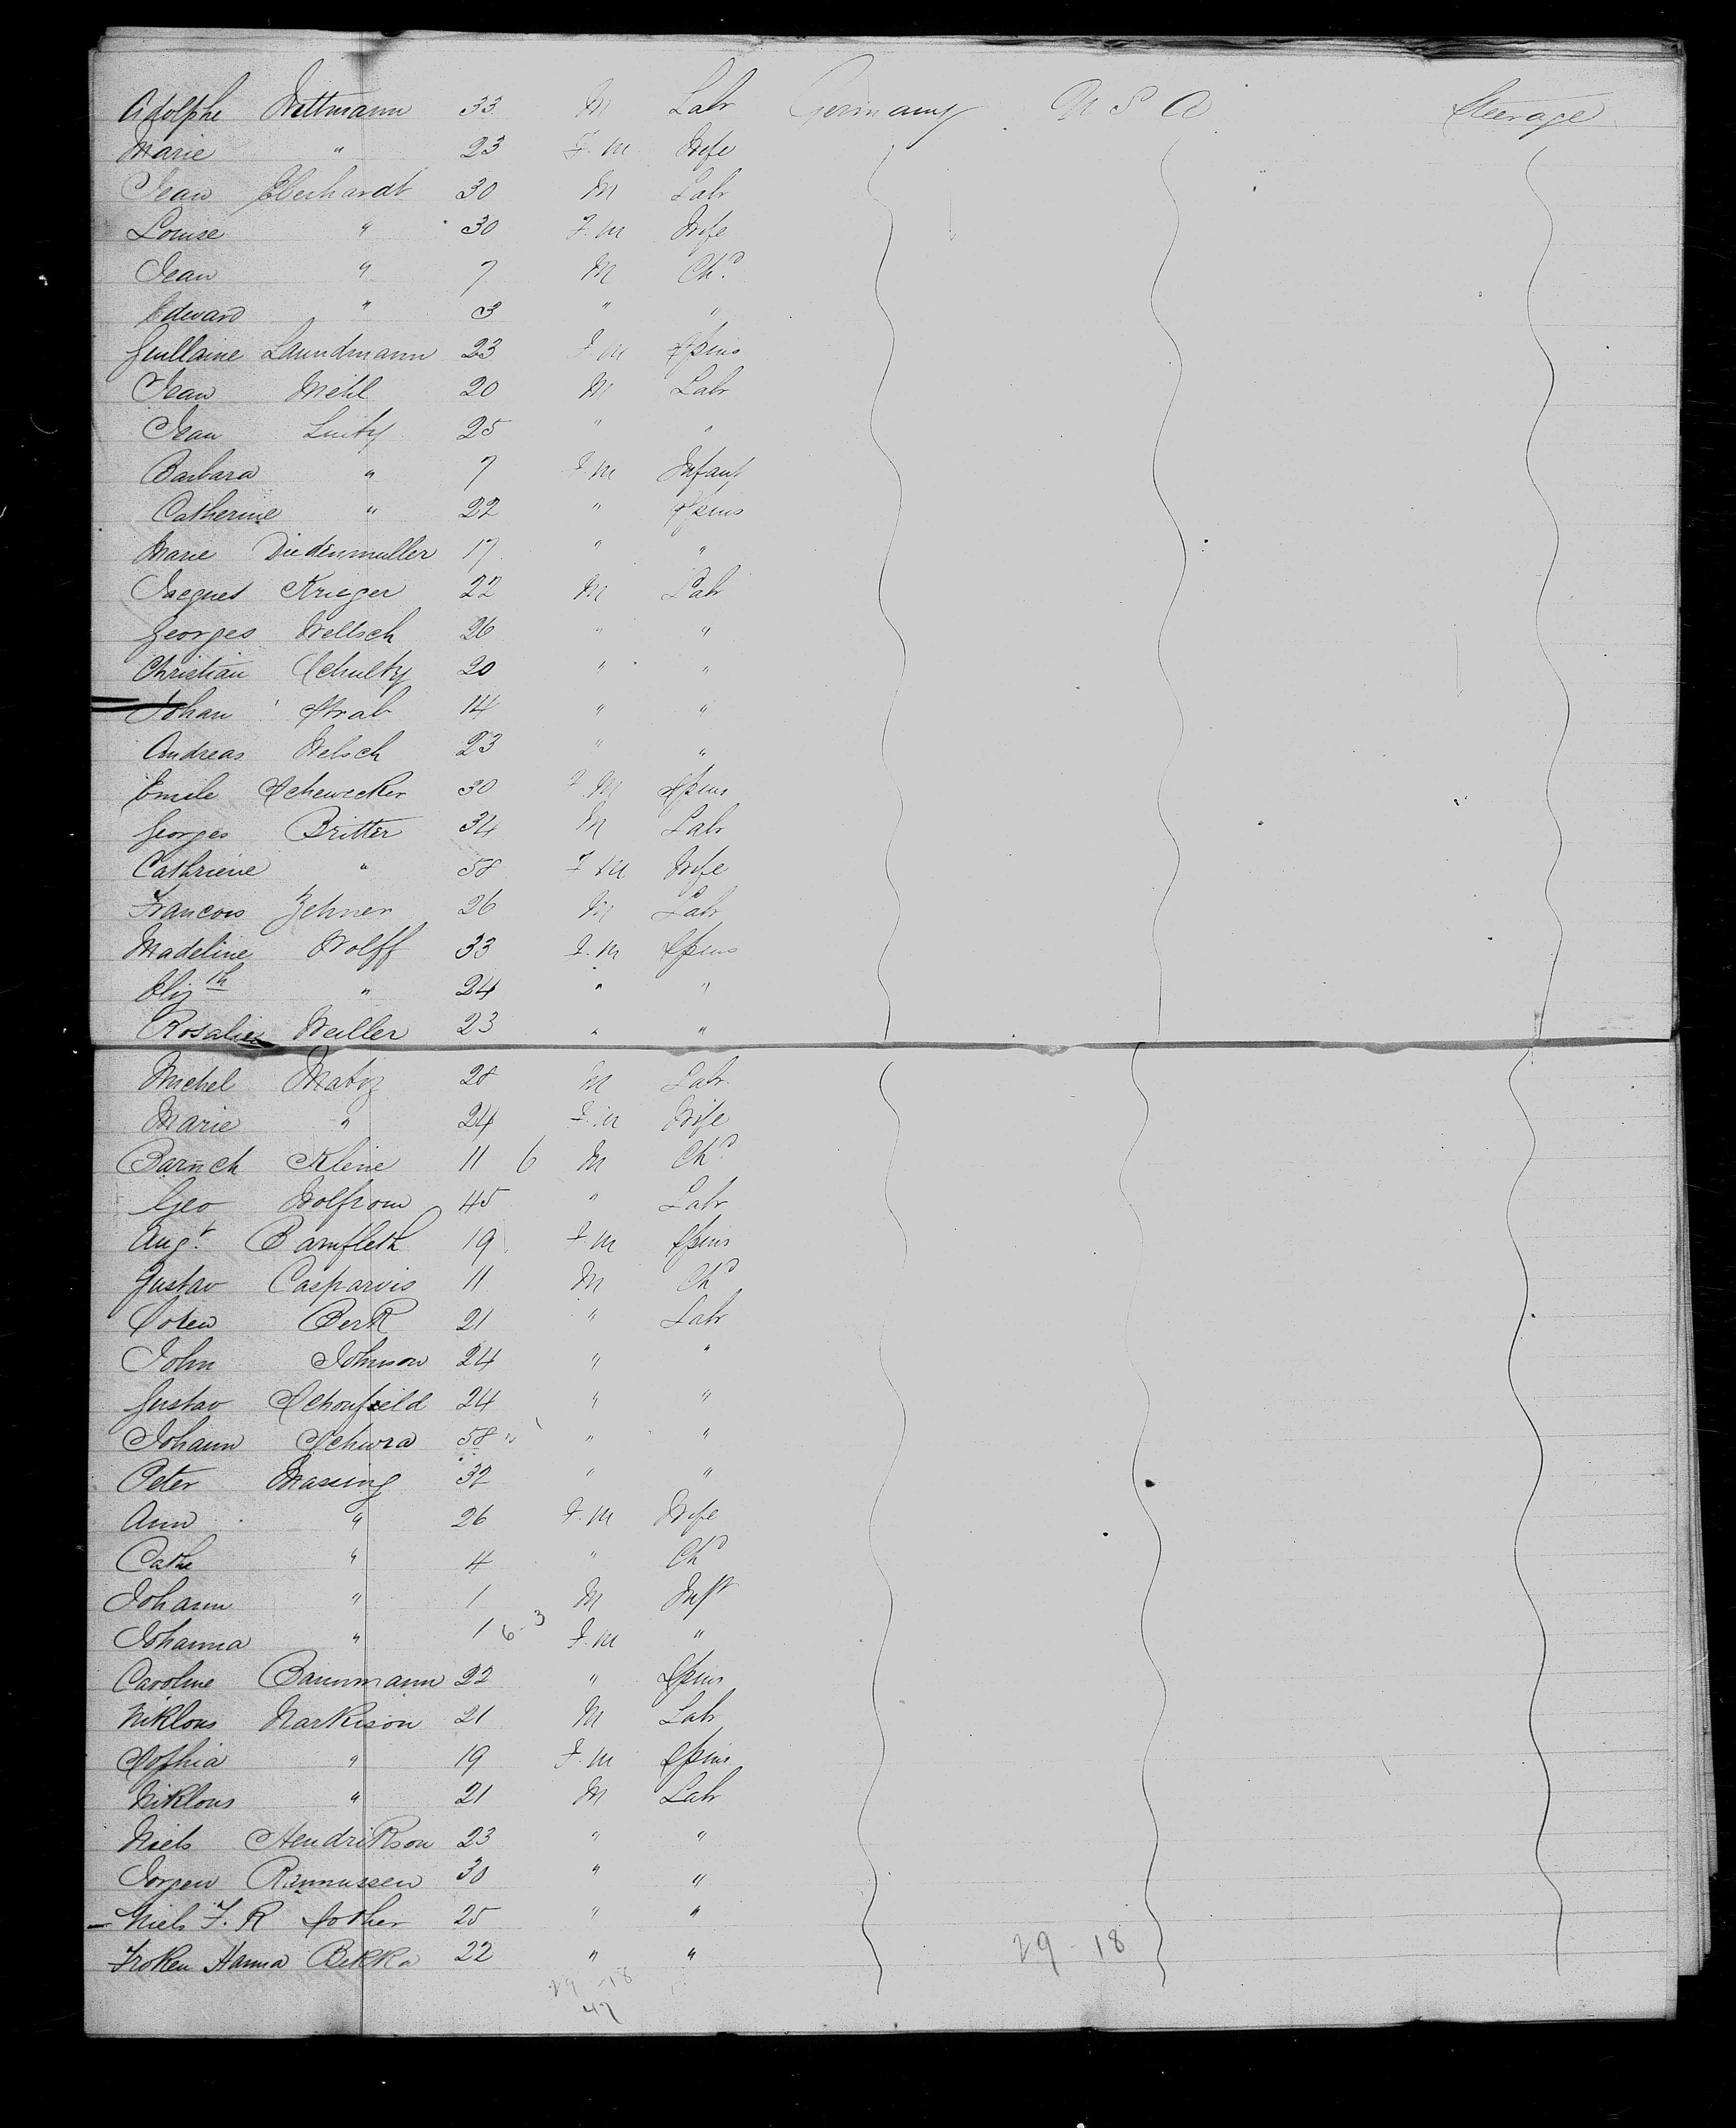 Adolphe Wittmann 33 M Labr Germany U S A Steerage
Marie " 23 F.M Wife
Jean Eberhardt 30 M Labr
Louise " 30 F.M Wife
Jean " 7 M Chd
Edward " 3 " "
Guillaine Laundmann 23 F.M Spins
Jean Mehl 20 M Labr
Jean Luity 25 " "
Barbara " 7 F.M Infant
Catherine " 22 " Spins
Marie Diedenmuller 17 " "
Jacques Krieger 22 M Labr
Georges Weltsch 26 " "
Christian Schulty 20 " "
Johan Strab 14 " "
Andreas Welsch 23 " "
Emile Schewecker 30 F.M Spins
Georges Britter 34 M Labr
Cathriene " 58 F.M Wife
Francois Zehner 26 M Labr
Madeline Wolff 33 F.M Spins
Eliz th " 24 " "
Rosalie Weiller 23 " "
Michel Matz 28 M Labr
Marie " 24 F.M Wife
Baruch Kleine 11 6 M Chd
Geo Wolfrom 45 " Labr
Augt Bamfleth 19 F.M Spins
Gustav Casparvis 11 M Chd
Soten Berk 21 " Labr
John Johnson 24 " "
Gustav Schonfield 24 " "
Johann Schwra 58 " "
Peter Massing 32 " "
Ann " 26 F.M Wife
Cathe " 4 " Chd
Johann " 1 M Inft
Johanna " 1 6-3 F.M "
Caroline Baummann 22 " Spins
Niklous Markison 21 M Labr
Sophia " 19 F.M Spins
Niklous " 21 M Labr
Niels Hendrikson 23 " "
Jorgen Rammussen 30 " "
Niels F. R Sother 25 " "
Froken Hanna Bekka 22 " "
29-18 29-18
47